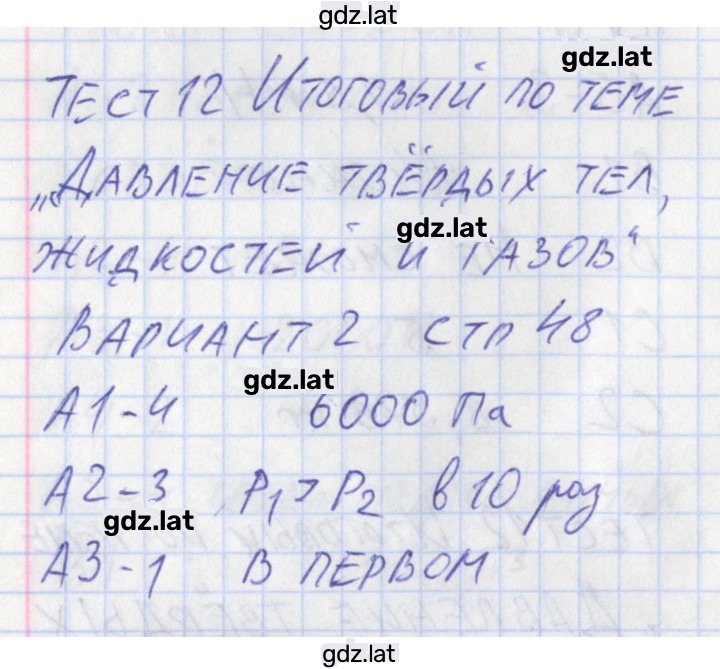 gdz.lat
gdz.lat
Тест 12 Итоговый по теме
„Давление твёрдых тел,
gdz.lat
жидкостей и газов“
Вариант 2 стр 48
gdz.lat
А1-4 6000 Па
А2-3 P₁>P₂ в 10 раз
gdz.lat
А3-1 в первом
gdz.lat